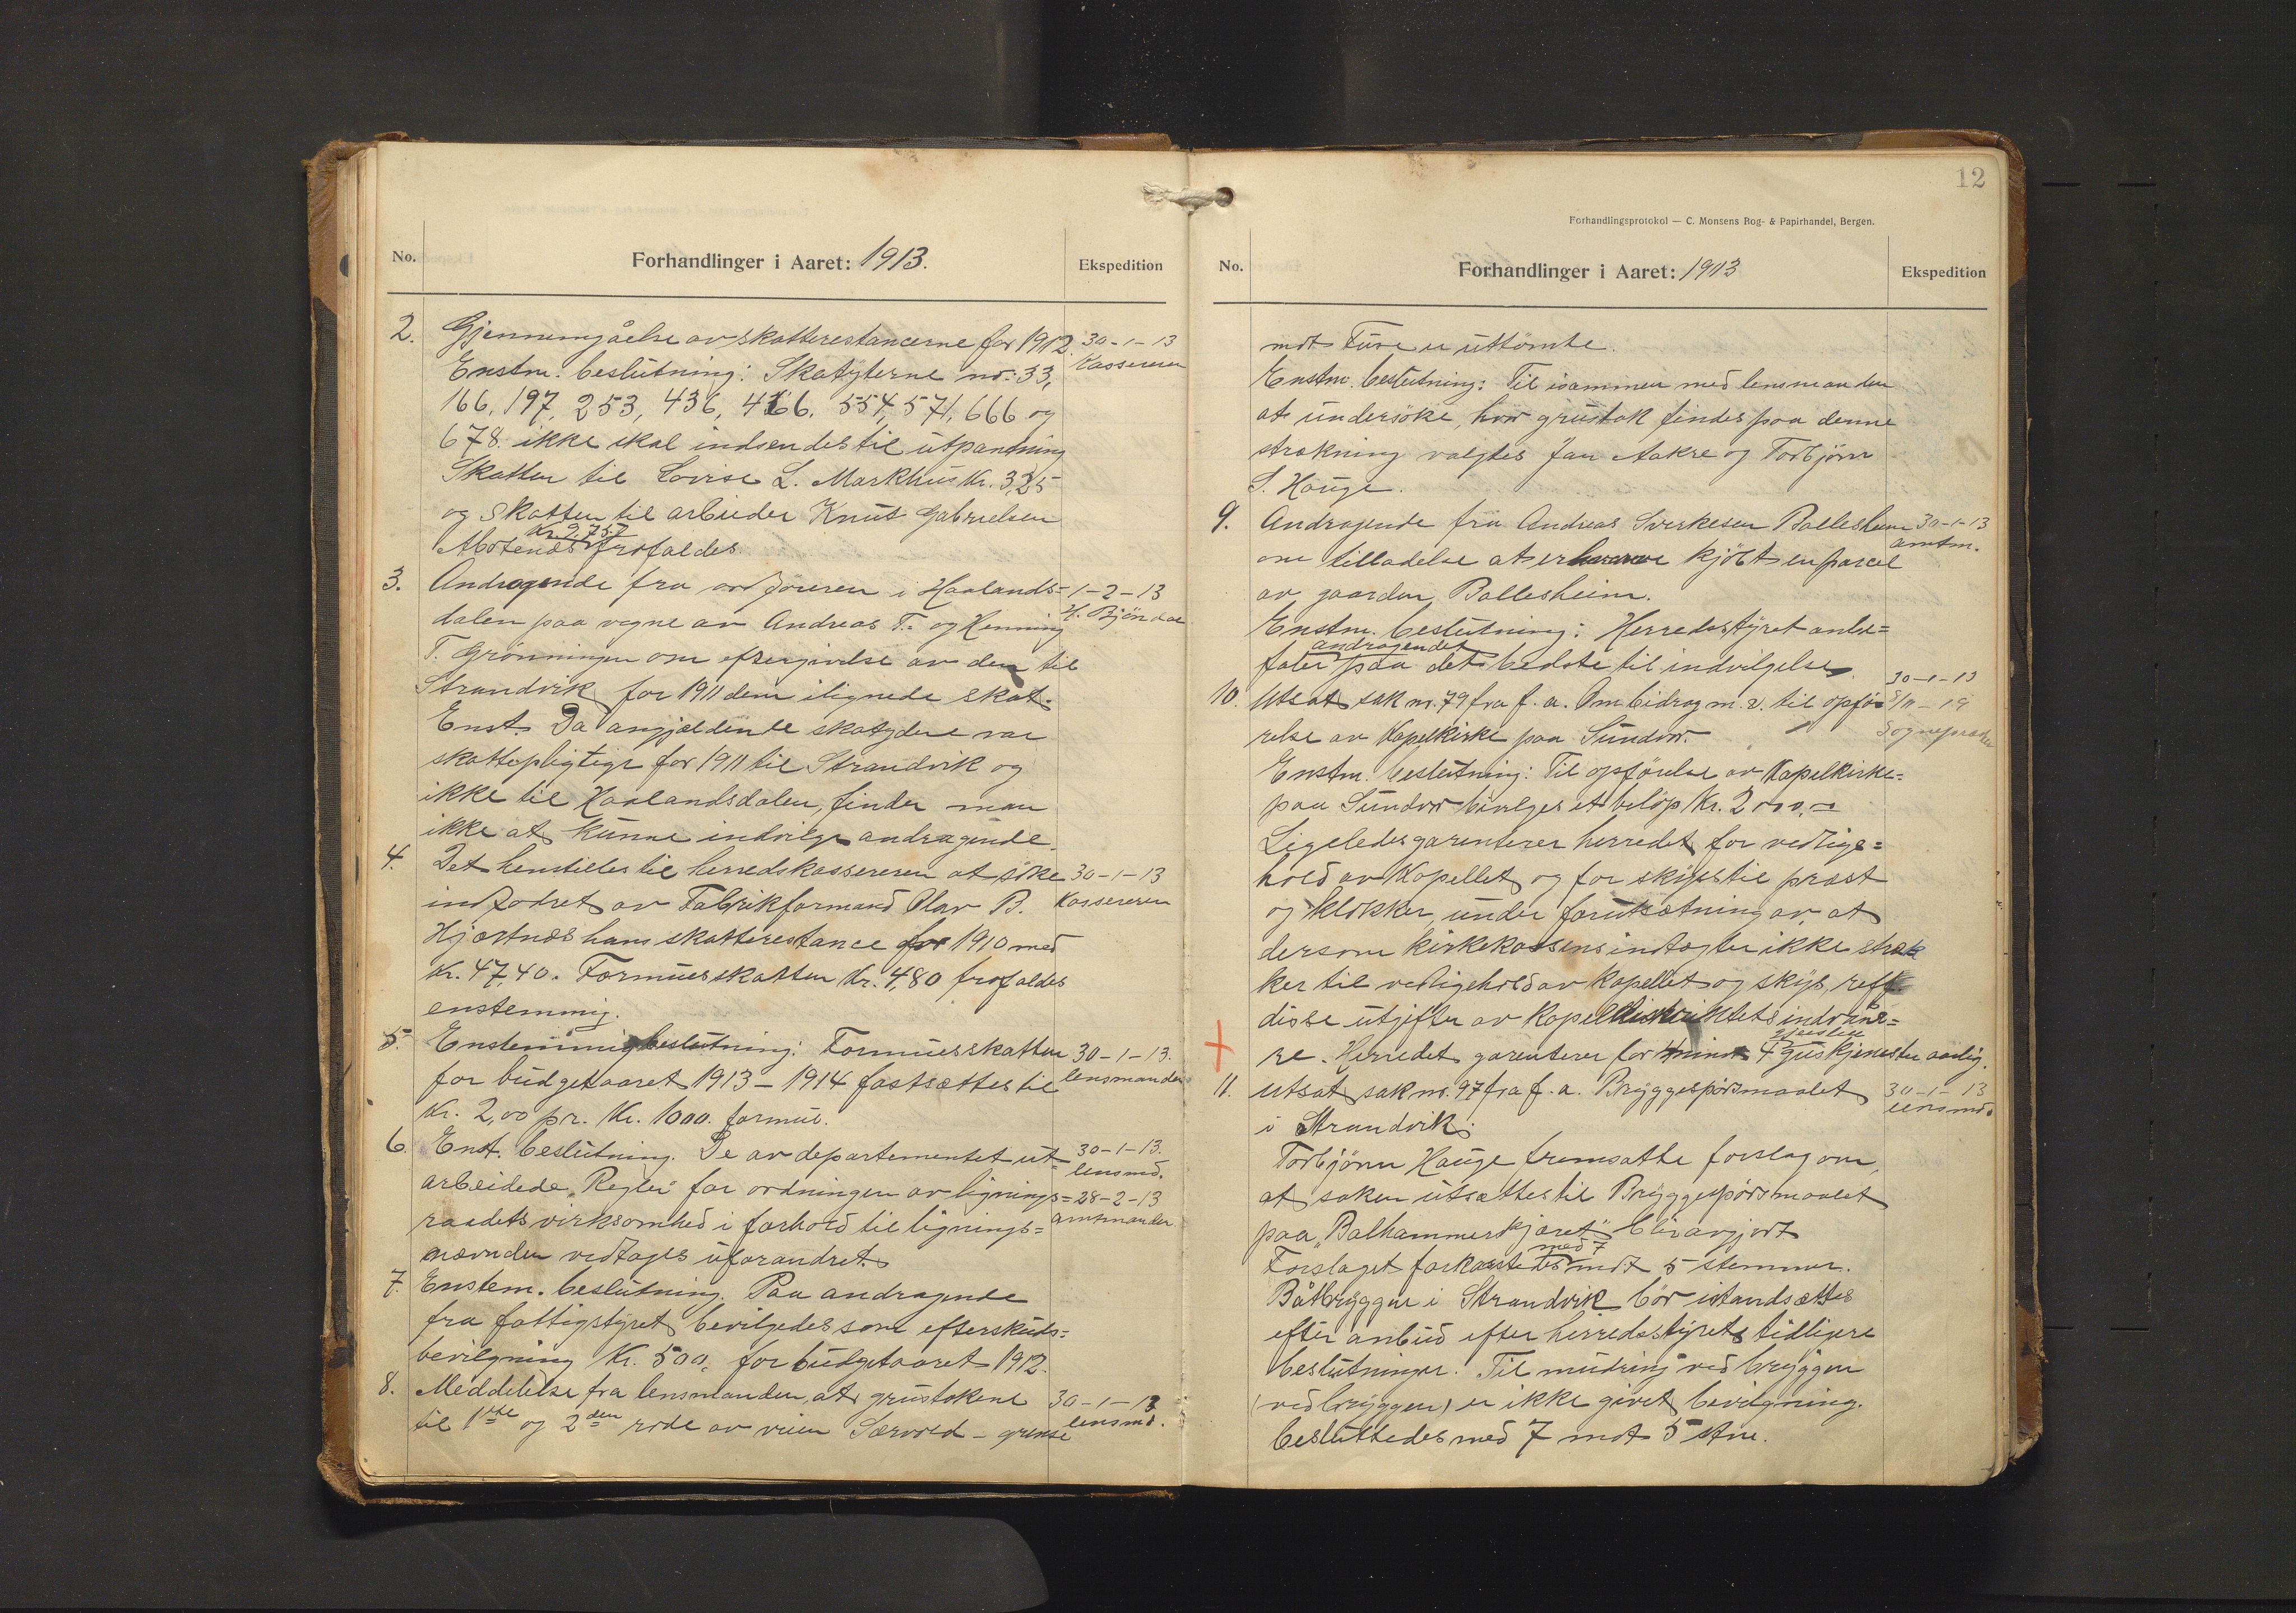 No.
Forhandlinger i Aaret: 1913.
Ekspedition
2. Gjennemgåelse av skatterestancerne for 1912. 30-1-13
Enstm. beslutning: Skatyterne nr. 33, Kassereren
166, 197, 253, 436, 466, 554, 571, 666 og
678 ikke skal indsendes til utpantning
Skatten til Lovise L. Markhus Kr. 3,25
og skatten til arbeider Knut Gabrielsen
Kr. 2,757
frafaldes.
3. Andragende fra ordföreren i Haalands= 1-2-13
dalen paa vegne av Andreas T. og Henning H. Bjöndal
T. Grönningen om eftergivelse av den til
Strandvik for 1911 dem ilignede skat.
Enst. Da angjældende skatydere var
skattepligtige for 1911 til Strandvik og
ikke til Haalandsdalen, finder man
ikke at kunne indvilge andragende.
4. Det henstilles til herredskassereren at söke 30-1-13
indfodret av Fabrikformand Olav B. Kassereren
Hjartnes hans skatterestance for 1910 med
Kr. 47,40. Formuesskatten Kr. 4,80 frafaldes
enstemmig.
5. Enstemmig beslutning: Formuesskatten 30-1-13.
for budgetaaret 1913-1914 fastsættes til lensmanden
Kr. 2,00 pr. Kr. 1000. formue.
6. Enst. beslutning. De av departementet ut= 30-1-13.
lensmd.
arbeidede "Regler" for ordningen av lignings= 28-2-13
raadets virksomhed i forhold til lignings= amtmanden
nævnden vedtages uforandret.
7. Enstem. beslutning. Paa andragende
fra fattigstyret bevilgedes som efterskuds=
bevilgning Kr. 500, for budgetaaret 1912.
8. Meddelelse fra lensmanden, at grustakene 30-1-13
til 1ste og 2den rode av veien Sævold - grense lensmd.
12
Forhandlingsprotokol — C. Monsens Bog- & Papirhandel, Bergen.
No.
Forhandlinger i Aaret: 1913
Ekspedition
mot Fure er uttömte.
Enstm. beslutning: Til isammen med lensmanden
at undersöke, hvor grustak findes paa denne
strækning valgtes Jan Aakre og Torbjörn
S. Hauge.
9. Andragende fra Andreas Sverkesen Ballesheim 30-1-13
om tilladelse at erhverve kjöbt en parcel amtm.
av gaarden Ballesheim.
Enstm. beslutning: Herredsstyret anbe=
andragendet
faler paa det bedste til indvilgelse.
30-1-13
10. Utsat sak nr. 79 fra f. a. Om bidrag m. v. til opfö= 5/11 - 19
relse av Kapelkirke paa Sundvor. Sognepresten
Enstm. beslutning: Til opförelse av Kapelkirke=
paa Sundvor bevilges et belöp Kr. 2000,=
Ligeledes garenterer herredet for vedlige=
hold av Kapellet og for skyss til præst
og klokker, under forutsætning av, at
dersom kirkekassens indtægter ikke stræk
ker til vedligehold av kapellet og skyss, reff.
disse utgifter av Kapeldistriktets indvåne=
re. Herredet garenterer for 4 guskjenester aarlig.
11. Utsat sak nr. 97 fra f. a. Bryggespörsmaalet 30-1-13
i Strandvik. lensmd.
Torbjörn Hauge fremsatte forslag om,
at saken utsættes til Bryggespörsmaalet
paa "Balhammerkjæret" blir avgjort
med 7
Forslaget forkastedes mot 5 stemmer.
Båtbryggen i Strandvik bör istandsættes
efter anbud efter herredsstyrets tidligere
beslutninger. Til mudring ved bryggen
(ved bryggen) er ikke givet bevilgning.
besluttedes med 7 mot 5 stm.